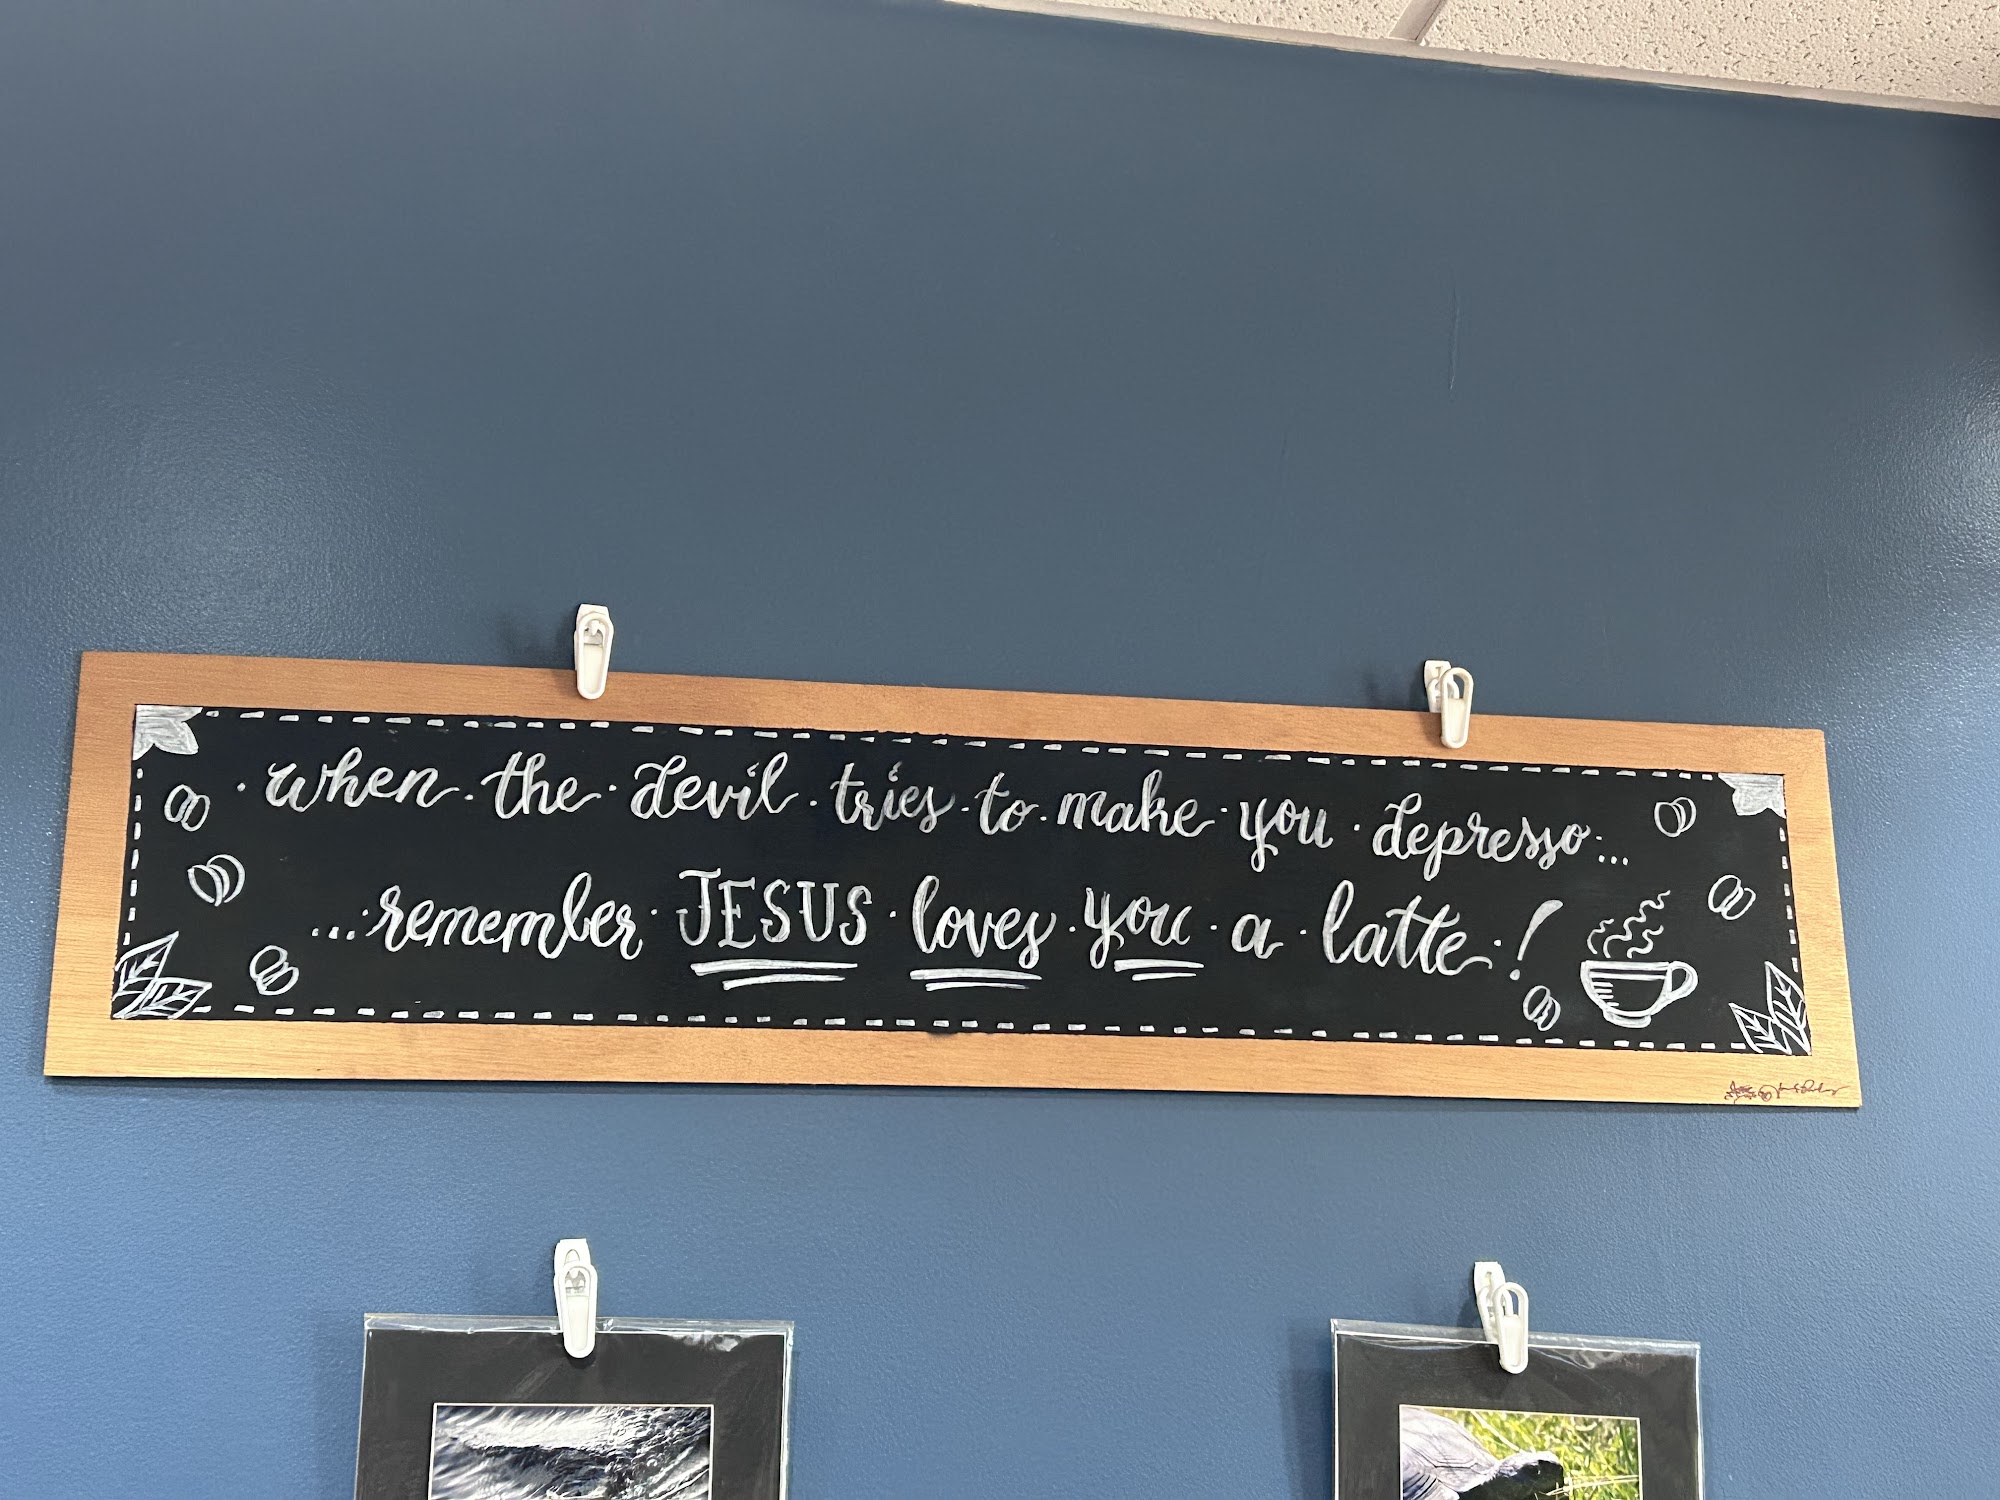 · when · the · devil · tries · to · make · you · depresso...
...remember · JESUS · loves · you · a · latte · !